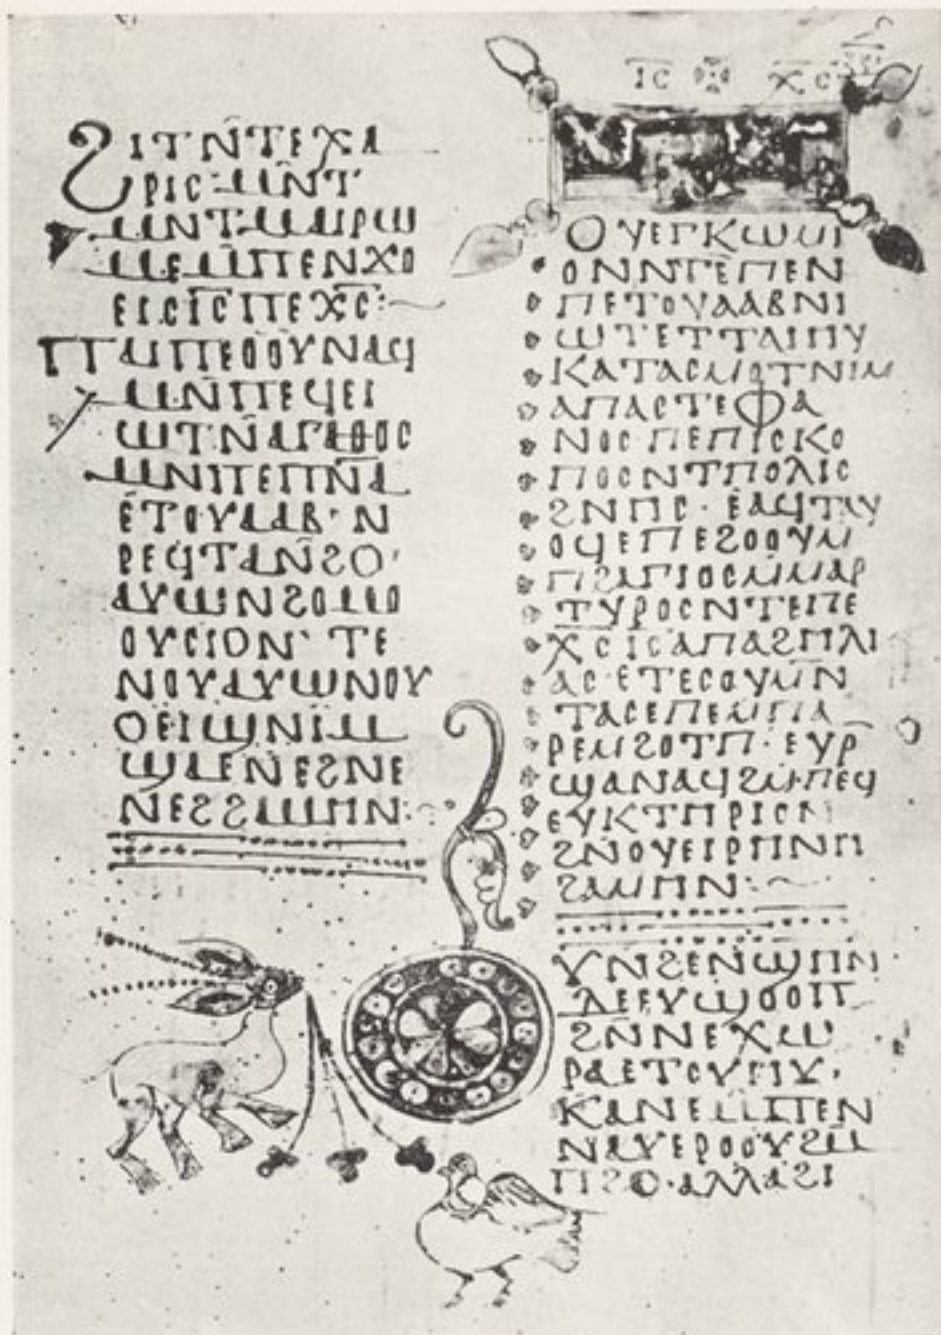 ϨⲒⲦⲚ̄ⲦⲈⲬⲀ
ⲢⲒⲤ ⲘⲚ̄Ⲧ
ⲘⲚⲦⲘⲀⲒⲢⲰ
ⲘⲈ ⲘⲠⲈⲚϪⲞ
ⲈⲒⲤ ⲒⲤ̄ ⲠⲈⲬⲤ̄:
ⲠⲀⲒ ⲠⲈⲞⲞⲨ ⲚⲀϤ
ⲘⲚ̄ ⲠⲈϤⲈⲒ
ⲰⲦ Ⲛ̄ⲀⲄⲀⲐⲞⲤ
ⲘⲚ ⲠⲈⲠⲚ̄Ⲁ
ⲈⲦⲞⲨⲀⲀⲂ· Ⲛ
ⲢⲈϤⲦⲀⲚϨⲞ·
ⲀⲨⲰ ⲚϨⲞⲘⲞ
ⲞⲨⲤⲒⲞⲚ· ⲦⲈ
ⲚⲞⲨ ⲀⲨⲰ ⲚⲞⲨ
ⲞⲈⲒϢ ⲚⲒⲘ
ϢⲀ ⲈⲚⲈϨ ⲚⲈ
ⲚⲈϨ ϨⲀⲘⲎⲚ:
ⲒⲤ̄ ⲬⲤ̄
ⲞⲨⲈⲄⲔⲰⲘⲒ
ⲞⲚ ⲚⲦⲈ ⲠⲈⲚ
ⲠⲈⲦⲞⲨⲀⲀⲂ ⲚⲒ
ⲰⲦ ⲈⲦⲦⲀⲒⲎⲨ
ⲔⲀⲦⲀ ⲤⲘⲞⲦ ⲚⲒⲘ
ⲀⲠⲀ ⲤⲦⲈⲪⲀ
ⲚⲞⲤ ⲠⲈⲠⲒⲤⲔⲞ
ⲠⲞⲤ ⲚⲦⲠⲞⲖⲒⲤ
ϨⲚⲎⲤ· ⲈⲀϤⲦⲀⲨ
ⲞϤ ⲈⲠⲈϨⲞⲞⲨ Ⲙ
ⲠϨⲀⲄⲒⲞⲤ ⲘⲘⲀⲢ
ⲦⲨⲢⲞⲤ ⲚⲦⲈ ⲠⲈ
ⲬⲤ ⲒⲤ ⲀⲠⲀ ϨⲎⲖⲒ
ⲀⲤ· ⲈⲦⲈ ⲤⲞⲨⲘⲚ
ⲦⲀⲤⲈ ⲠⲈ ⲘⲠⲀ
ⲢⲈⲘϨⲞⲦⲠ· ⲈⲨⲢ̄
ϢⲀ ⲚⲀϤ ϨⲘ ⲠⲈϤ
ⲈⲨⲔⲦⲎⲢⲒⲞⲚ
ϨⲚ ⲞⲨⲈⲒⲢⲎⲚⲎ
ϨⲀⲘⲎⲚ:
ⲨⲚ ϨⲈⲚϢⲎⲚ
ⲆⲈ ⲈⲨϢⲞⲞⲠ
ϨⲚ̄ ⲚⲈⲬⲰ
ⲢⲀ ⲈⲦⲞⲨⲎⲨ·
ⲔⲀⲚ ⲈⲘⲠⲈⲚ
ⲚⲀⲨ ⲈⲢⲞⲞⲨ ϨⲘ
ⲠϨⲞ· ⲀⲖⲖⲀ ϨⲒ